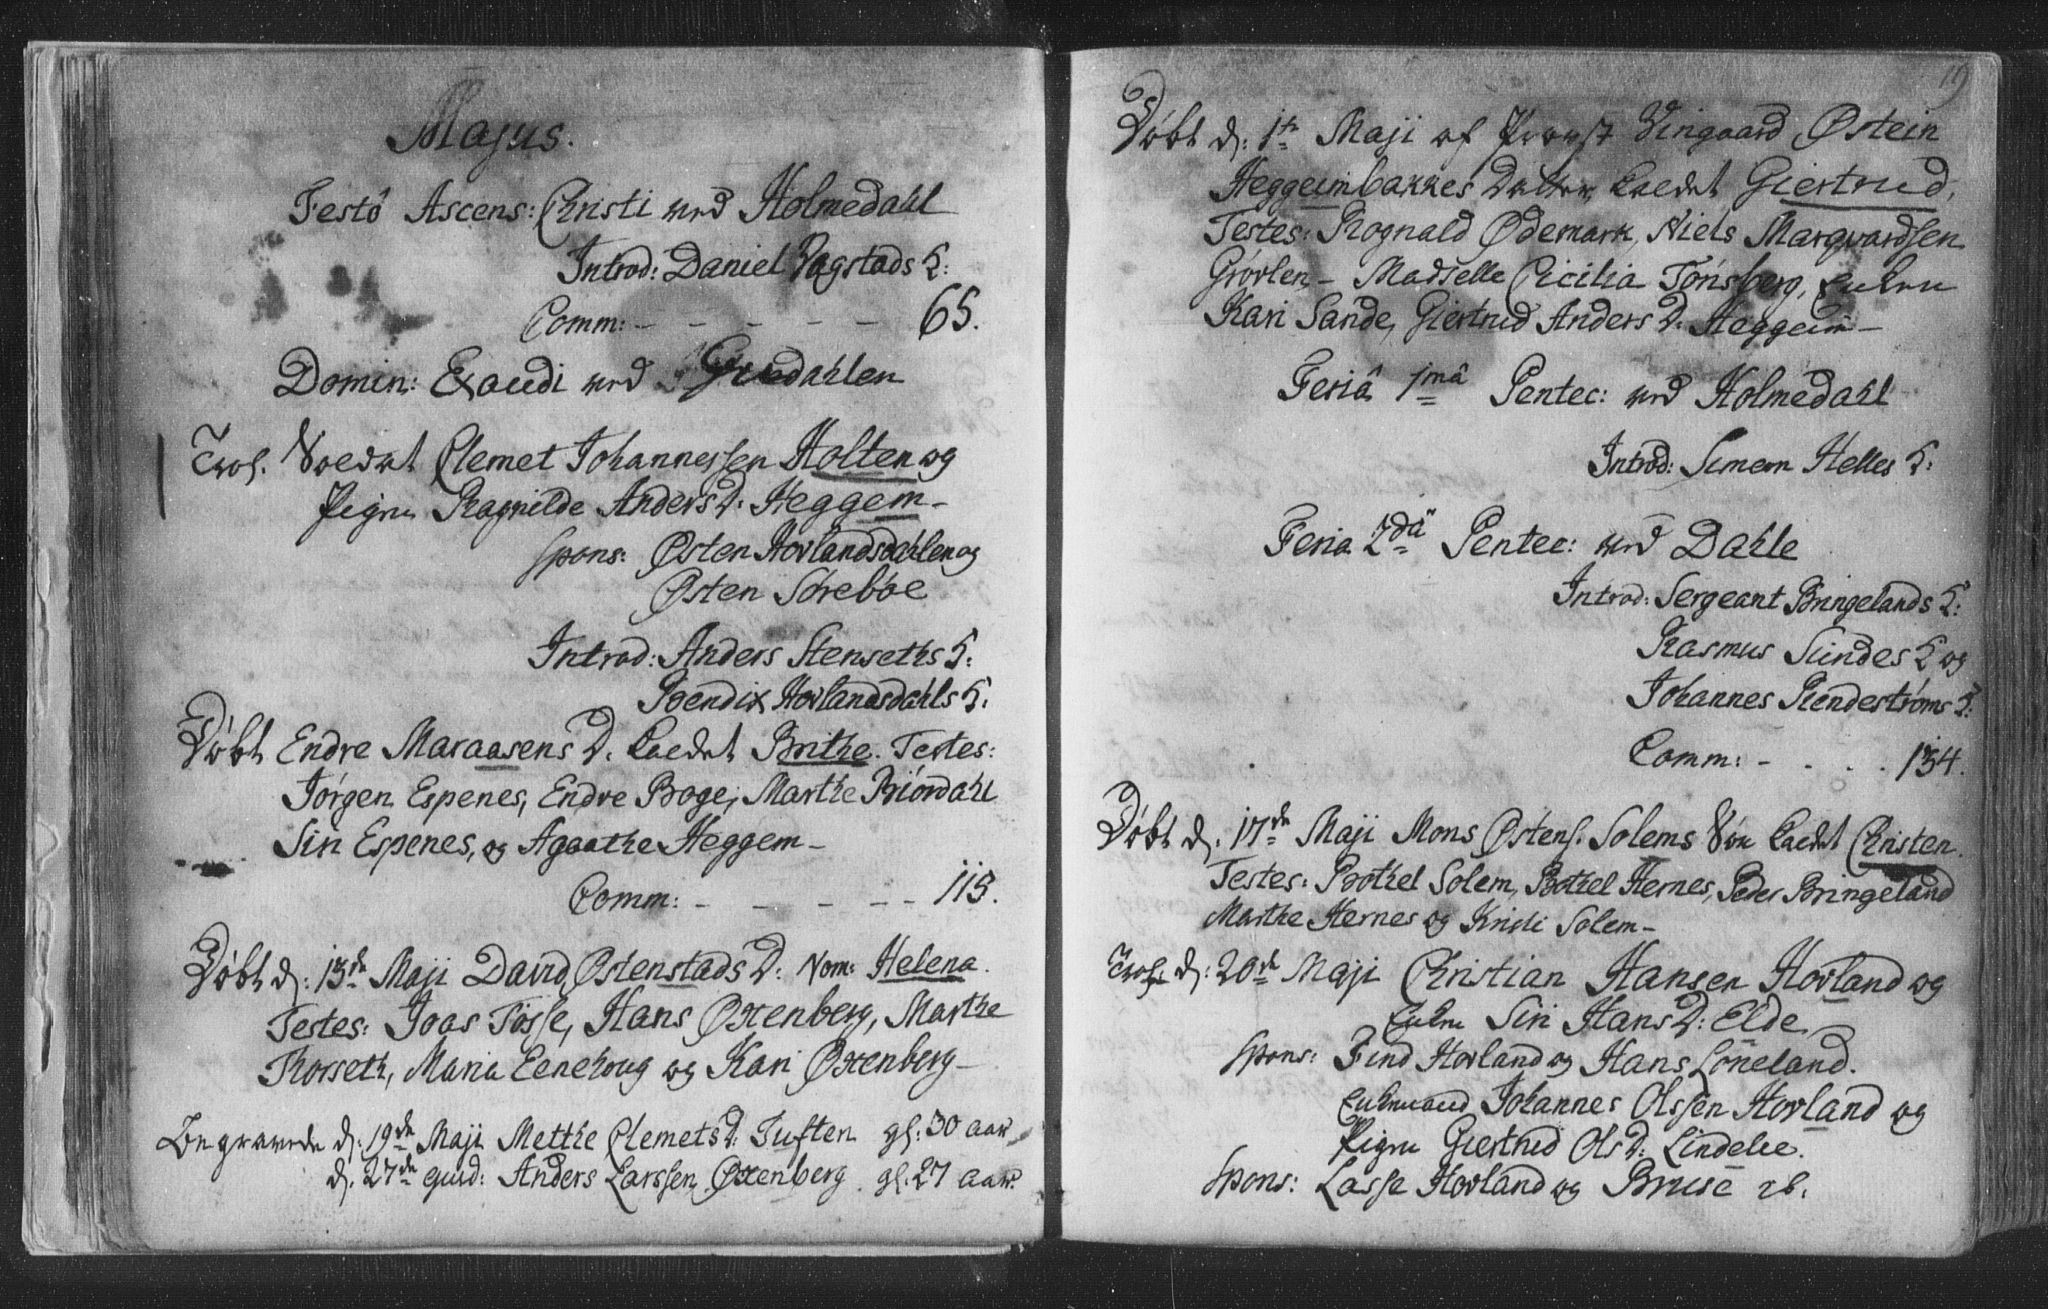 Majus.
Festô Ascens: Christi ved Holmedahl
Introd: Daniel Bagstads K:
Comm: - - - - - 65.
Domin: Exaudi ved Guddahlen
Trol. Soldat Clemet Johannessen Holten og
Pigen Ragnilde Anders D: Heggem -
Spons: Østen Hovlandsdahlen og
Østen Sørebøe
Introd: Anders Stenseths K:
Bendix Hovlandsdahls K:
Døbt Endre Maraasens D. kaldet Brithe. Testes:
Jørgen Espenes, Endre Boge, Marthe Biørdahl
Siri Espenes, og Agaathe Heggem -
Comm: - - - - - 115.
Døbt d: 13de Maji David Østenstads D: Nom: Helena.
Testes: Joas Tøsse, Hans Øxenberg, Marthe
Thorseth, Maria Eenehoug og Kari Øxenberg -
Begravede d: 19de Maji Metthe Clemets D: Tuften gl: 30 aar
d. 27de ejusd: Anders Larssen Øxenberg gl. 27 aar.
119
Døbt d: 1te Maji af Provst Vingaard Østein
Heggeimbakkes Datter kaldet Giertrud,
Testes: Rognald Ødemark, Niels Marqvardsen
Grøvlen - Madselle Cicilia Tønsberg, Enken
Kari Sande, Giertrud Anders D. Heggeim -
Feriâ 1mâ Pentec: ved Holmedahl
Introd: Simen Helles K:
Feria 2dâ Pentec: ved Dahle
Introd: Sergeant Bringelands K:
Rasmus Sundes K og
Johannes Rendestrøms K:
Comm: - . . . 134.
Døbt d. 17de Maji Mons Østens. Solems Søn kaldet Christen.
Testes: Bothel Solem, Bothel Hernes, Peder Bringeland
Marthe Hernes og Kristi Solem -
Trol. d: 20de Maji Christian Hansen Hovland og
Enken Siri Hans D: Elde
Spons: Find Hovland og Hans Løneland.
Enkemand Johannes Olssen Hovland og
Pigen Giertrud Ols D: Lindelie.
Spons: Lasse Hovland og Bruse ib.